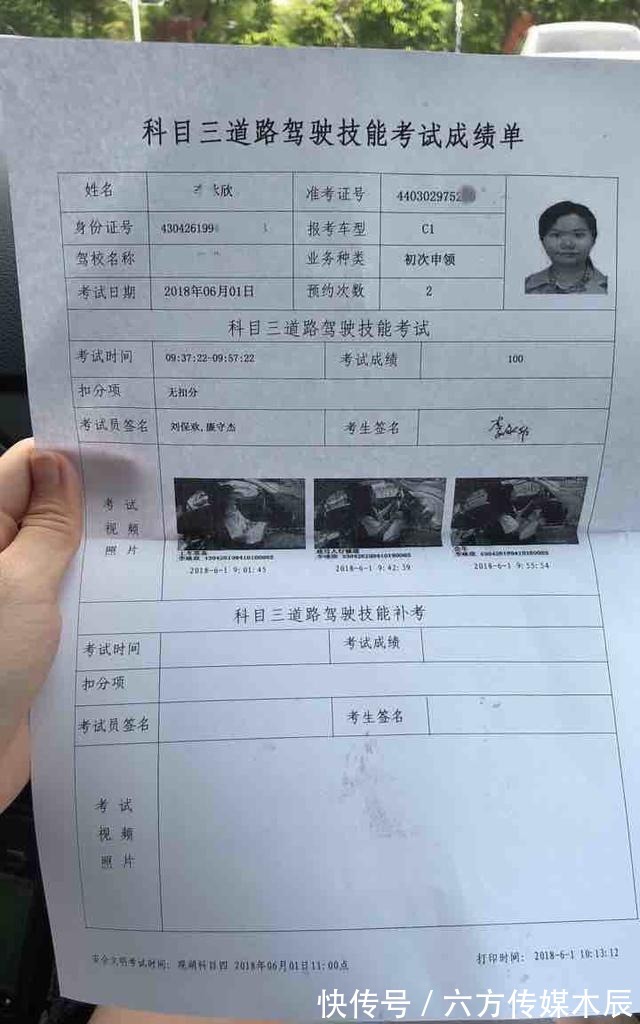 科目三道路驾驶技能考试成绩单
姓名 欣 准考证号 440302975
身份证号 报考车型 C1
驾校名称 业务种类 初次申领
考试日期 2018年06月01日 预约次数 2
科目三道路驾驶技能考试
考试时间 09:37:22-09:57:22 考试成绩 100
扣分项 无扣分
考试员签名 刘保欢,廉守杰 考生签名
考试视频照片
2018-6-1 9:01:45 2018-6-1 9:42:39 2018-6-1 9:55:54
科目三道路驾驶技能补考
考试时间 考试成绩
扣分项
考试员签名 考生签名
考试视频照片
安全文明考试时间: 观湖科目四 2018年06月01日11:00点 打印时间: 2018-6-1 10:13:12
快传号 / 六方传媒木辰